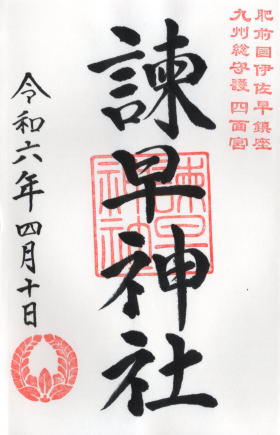 肥前国伊佐早鎮座
九州総守護四面宮
諫早神社
諫早神社
令和六年四月十日